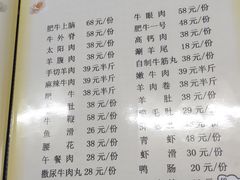 肥牛上脑 68元/份
牛外脊 58元/份
太阳肉 38元/份
羊腹肉 38元/份
手切羊肉 39元半斤
麻辣牛肉 39元半斤
羊肚 38元/份
牛鞭 58元/份
鱼滑 38元/份
腰花 38元/份
午餐肉 28元/份
撒尿牛肉丸 28元/份
牛眼肉 58元/份
肥牛一号 48元/份
高钙肉 38元/份
涮羊尾 18元/份
自制牛筋丸 38元/份
嫩牛肉 39元半斤
羊肉卷 38元/份
肚 38元/份
毛肚 38元/份
38元/份
青虾 48元/份
虾滑 30元/份
鸭肠 20元/份